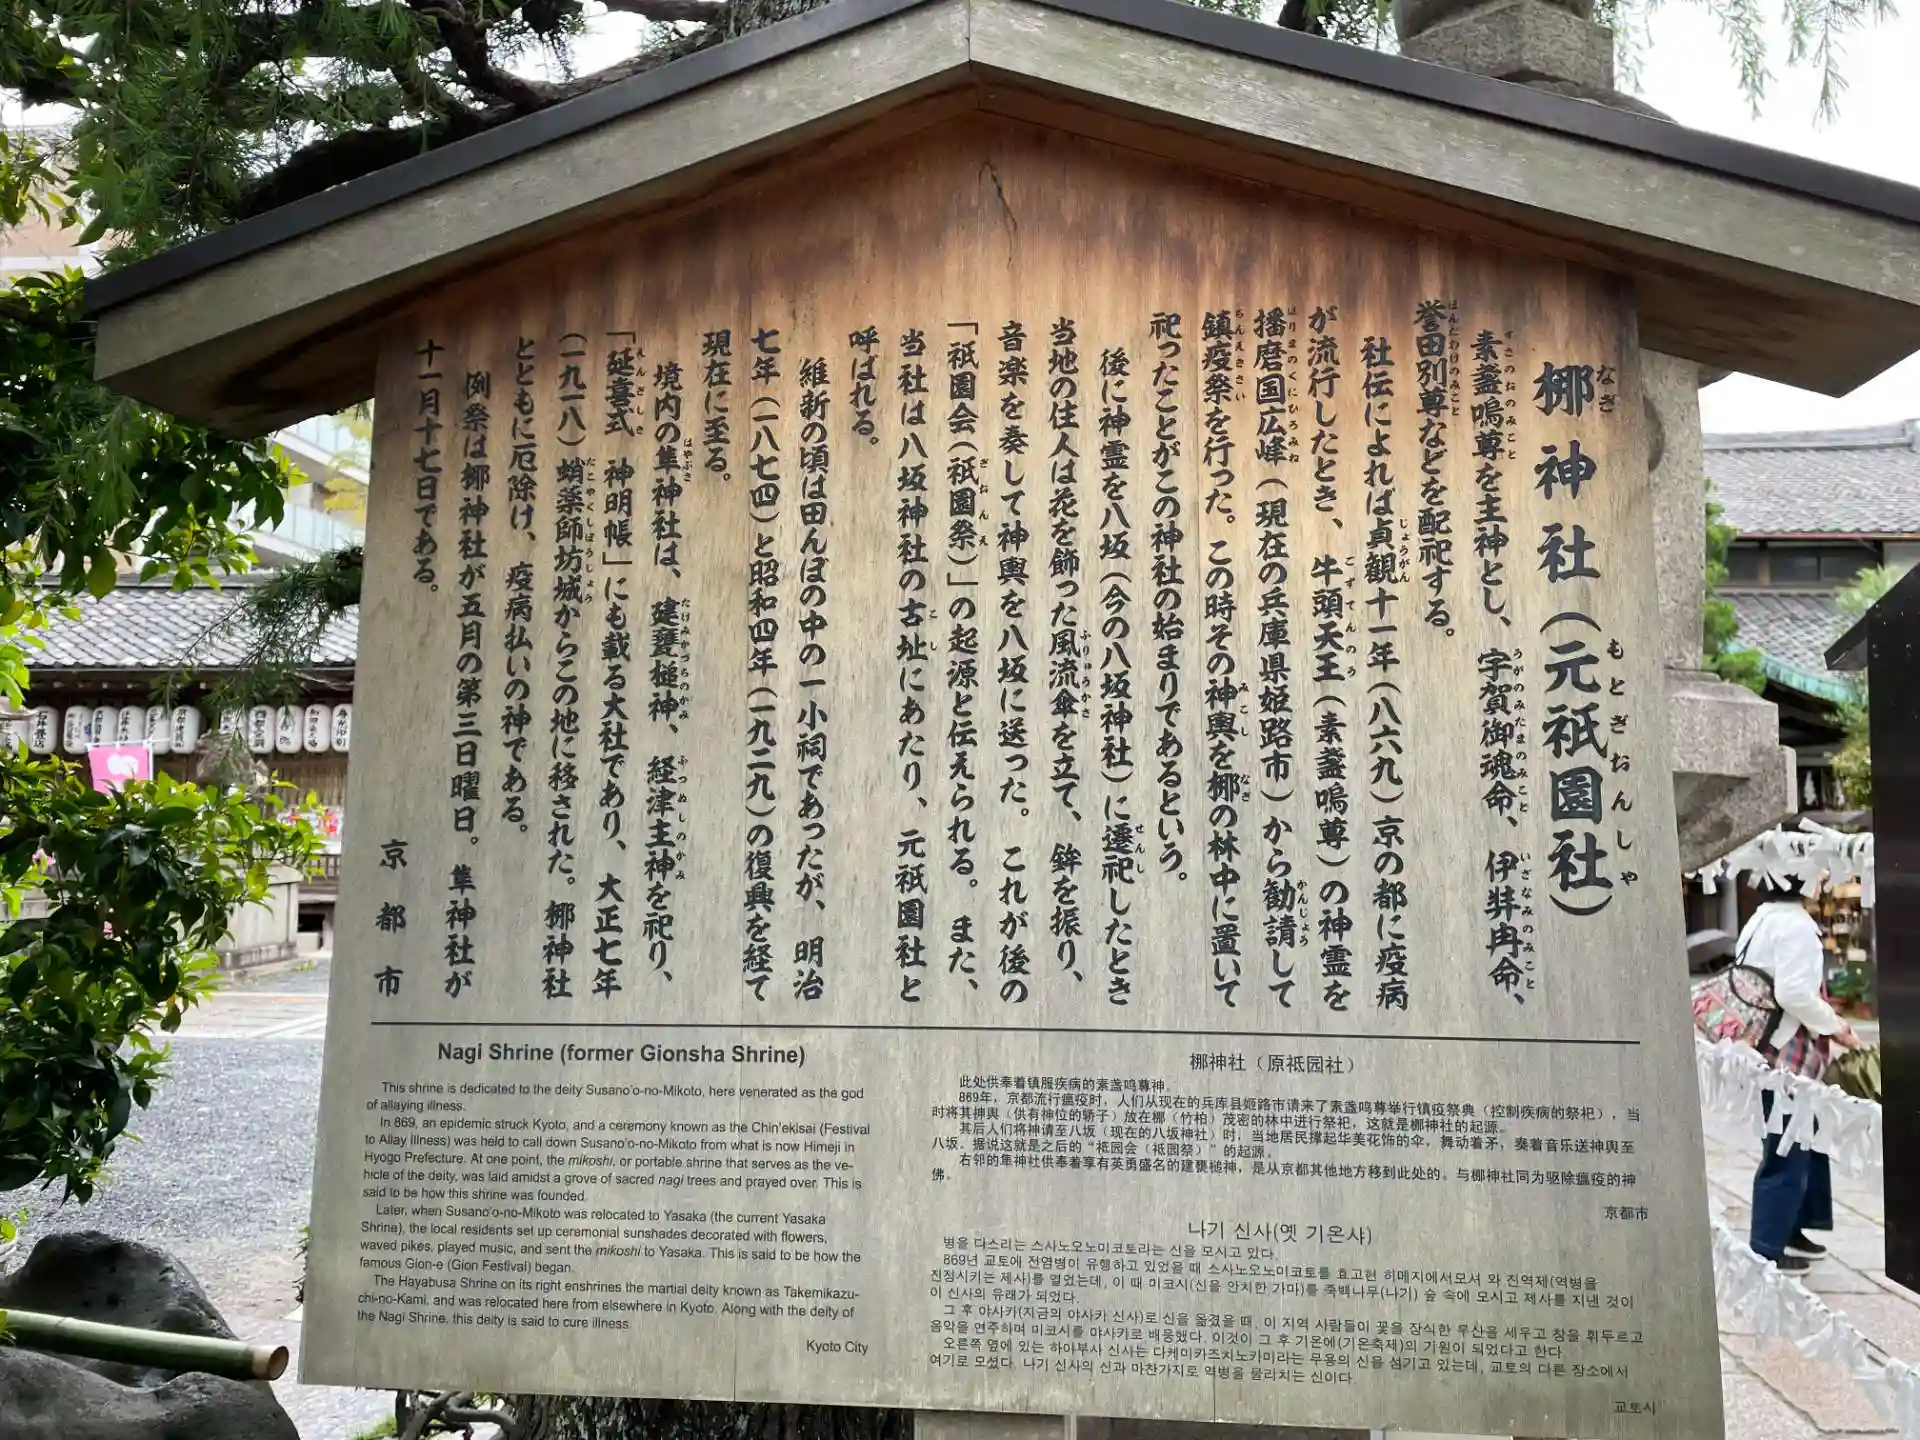 梛神社（元祇園社）
素盞嗚尊を主神とし、宇賀御魂命、伊弉冉命、
誉田別尊などを配祀する。
社伝によれば貞観十一年（八六九）京の都に疫病
が流行したとき、牛頭天王（素盞嗚尊）の神霊を
播磨国広峰（現在の兵庫県姫路市）から勧請して
鎮疫祭を行った。この時その神輿を梛の林中に置いて
祀ったことがこの神社の始まりであるという。
後に神霊を八坂（今の八坂神社）に遷祀したとき
当地の住人は花を飾った風流傘を立て、鉾を振り、
音楽を奏して神輿を八坂に送った。これが後の
「祇園会（祇園祭）」の起源と伝えられる。また、
当社は八坂神社の古址にあたり、元祇園社と
呼ばれる。
維新の頃は田んぼの中の一小祠であったが、明治
七年（一八七四）と昭和四年（一九二九）の復興を経て
現在に至る。
境内の隼神社は、建甕槌神、経津主神を祀り、
「延喜式　神明帳」にも載る大社であり、大正七年
（一九一八）蛸薬師坊城からこの地に移された。梛神社
とともに厄除け、疫病払いの神である。
例祭は梛神社が五月の第三日曜日。隼神社が
十一月十七日である。
京都市
Nagi Shrine (former Gionsha Shrine)
This shrine is dedicated to the deity Susano'o-no-Mikoto, here venerated as the god
of allaying illness.
In 869, an epidemic struck Kyoto, and a ceremony known as the Chin'ekisai (Festival
to Allay Illness) was held to call down Susano'o-no-Mikoto from what is now Himeji in
Hyogo Prefecture. At one point, the mikoshi, or portable shrine that serves as the ve-
hicle of the deity, was laid amidst a grove of sacred nagi trees and prayed over. This is
said to be how this shrine was founded.
Later, when Susano'o-no-Mikoto was relocated to Yasaka (the current Yasaka
Shrine), the local residents set up ceremonial sunshades decorated with flowers,
waved pikes, played music, and sent the mikoshi to Yasaka. This is said to be how the
famous Gion-e (Gion Festival) began.
The Hayabusa Shrine on its right enshrines the martial deity known as Takemikazu-
chi-no-Kami, and was relocated here from elsewhere in Kyoto. Along with the deity of
the Nagi Shrine, this deity is said to cure illness.
Kyoto City
梛神社（原祗园社）
此处供奉着镇服疾病的素盏鸣尊神。
869年，京都流行瘟疫时，人们从现在的兵库县姬路市请来了素盏鸣尊举行镇疫祭典（控制疾病的祭祀），当
时将其神舆（供有神位的轿子）放在梛（竹柏）茂密的林中进行祭祀，这就是梛神社的起源。
其后人们将神请至八坂（现在的八坂神社）时，当地居民撑起华美花饰的伞，舞动着矛，奏着音乐送神舆至
八坂。据说这就是之后的“祗园会（祗园祭）”的起源。
右邻的隼神社供奉着享有英勇盛名的建甕槌神，是从京都其他地方移到此处的。与梛神社同为驱除瘟疫的神
佛。
京都市
나기 신사(옛 기온샤)
병을 다스리는 스사노오노미코토라는 신을 모시고 있다.
869년 교토에 전염병이 유행하고 있었을 때 스사노오노미코토를 효고현 히메지에서모셔 와 진역제(역병을
진정시키는 제사)를 열었는데, 이 때 미코시(신을 안치한 가마)를 죽백나무(나기) 숲 속에 모시고 제사를 지낸 것이
이 신사의 유래가 되었다.
그 후 야사카(지금의 야사카 신사)로 신을 옮겼을 때, 이 지역 사람들이 꽃을 장식한 우산을 세우고 창을 휘두르고
음악을 연주하며 미코시를 야사카로 배웅했다. 이것이 그 후 기온에(기온축제)의 기원이 되었다고 한다.
오른쪽 옆에 있는 하야부사 신사는 다케미카즈치노카미라는 무용의 신을 섬기고 있는데, 교토의 다른 장소에서
여기로 모셨다. 나기 신사의 신과 마찬가지로 역병을 물리치는 신이다.
교토시